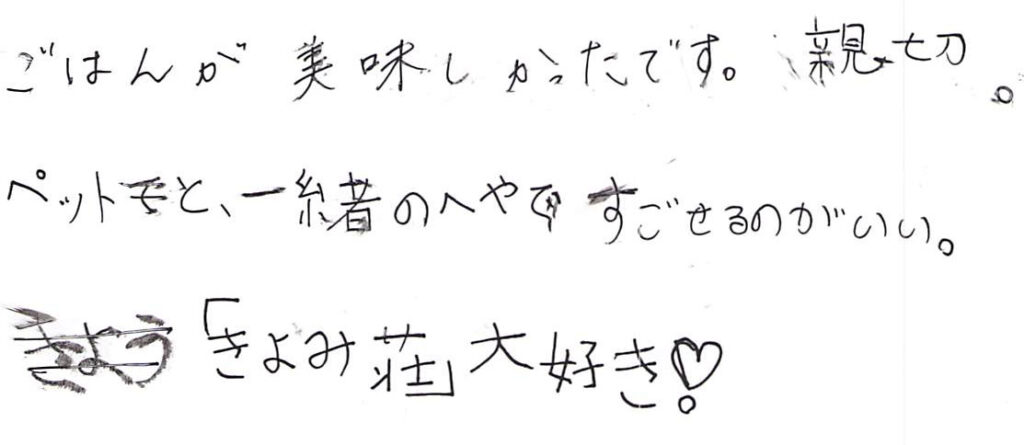 ごはんが美味しかったです。親切。
ペットモと、一緒者のへやですごせるのがいい。
「きよみ荘」大好き!♡